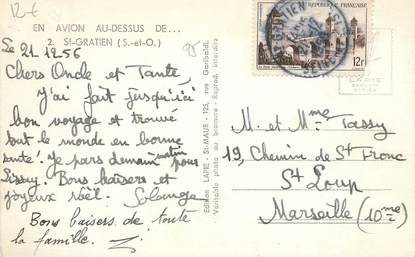 12€
EN AVION AU-DESSUS DE...
2. St-GRATIEN (S.-et-O.)
Le 21.12 56
Chers Oncle et Tante,
J'ai fait jusqu'ici
bon voyage et trouvé
tout le monde en bonne
santé. Je pars demain matin pour
Sissy. Bons baisers et
joyeux Noël. Solange
Bons baisers de toute
la famille.
Edition LAPIE - St-MAUR - 125, rue Garibaldi.
Véritable photo au bromure - Reprod. interdite
REPUBLIQUE FRANÇAISE
12f
St GRATIEN
LAPIE
M. et Mme Tassy
19, Chemin de St Tronc
St Loup
Marseille (10me)